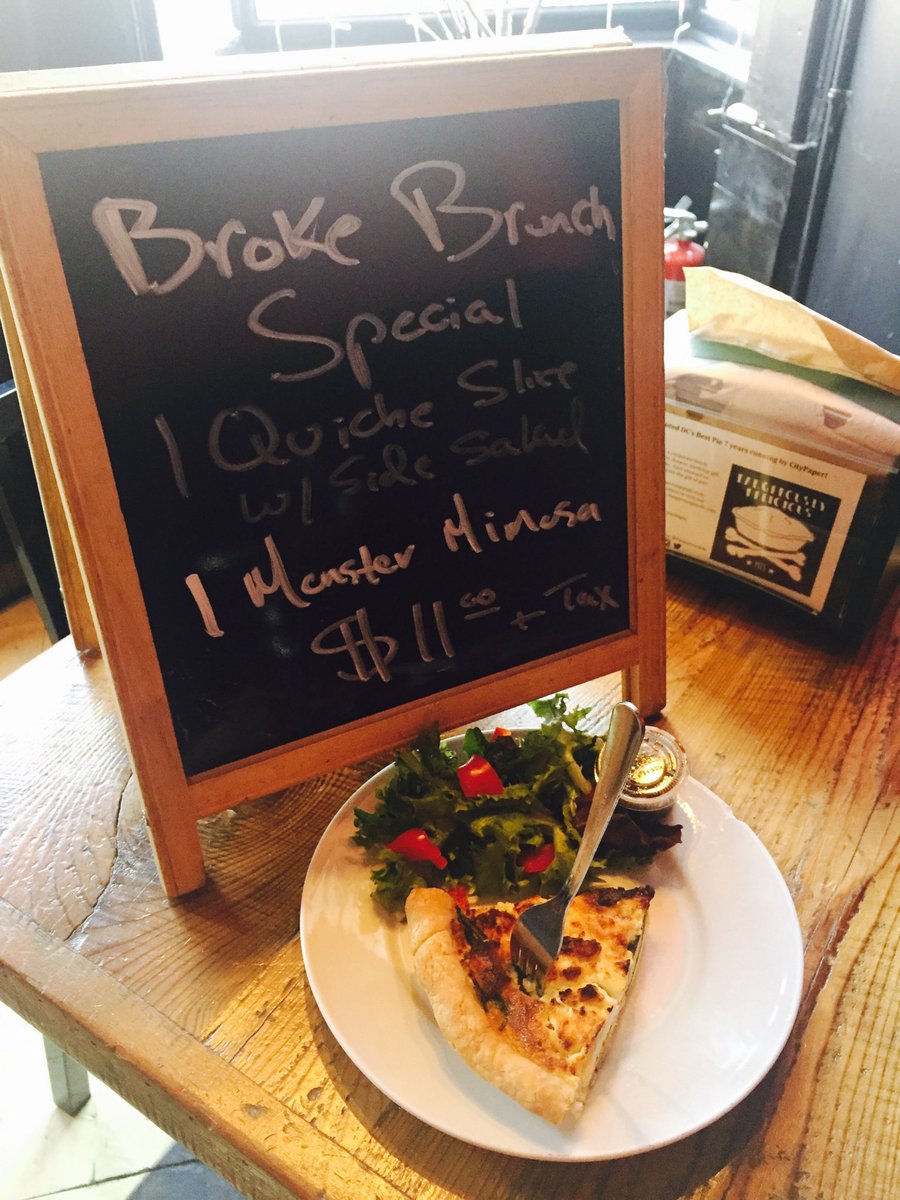 Broke Brunch
Special
1 Quiche Slice
w/ Side Salad
1 Monster Mimosa
$11.00 + Tax
DC's Best Pie 7 years running by CityPaper!
DELICIOUS